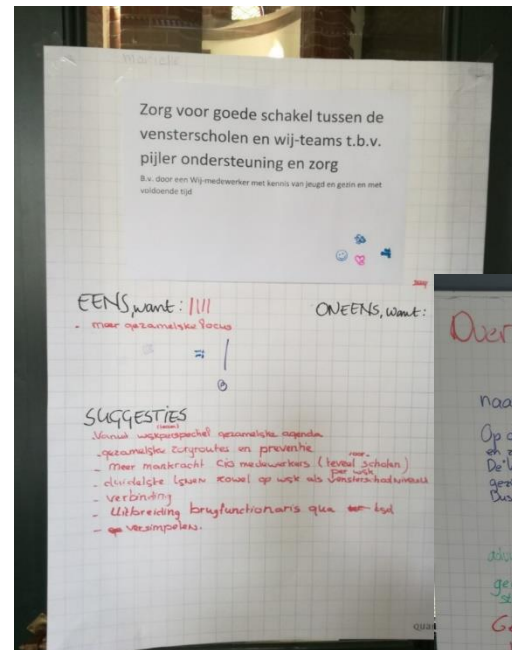 Zorg voor goede schakel tussen de
vensterscholen en wij-teams t.b.v.
pijler ondersteuning en zorg
B.v. door een Wij-medewerker met kennis van jeugd en gezin en met
voldoende tijd
EENS, want: ||||
- meer gezamelijke focus
= !
ONEENS, want:
SUGGESTIES
Vanuit wijkperspectief gezamelijke agenda
- gezamelijke zorgroutes en preventie
- meer mankracht CJG medewerkers (teveel scholen)
per wijk
- duidelijke lijnen zowel op wijk als vensterschoolniveau
- verbinding
- Uitbreiding brugfunctionaris qua tijd
- versimpelen.
Over
naa
Op
en
De
gezi
Bus
advi
ge
Ge